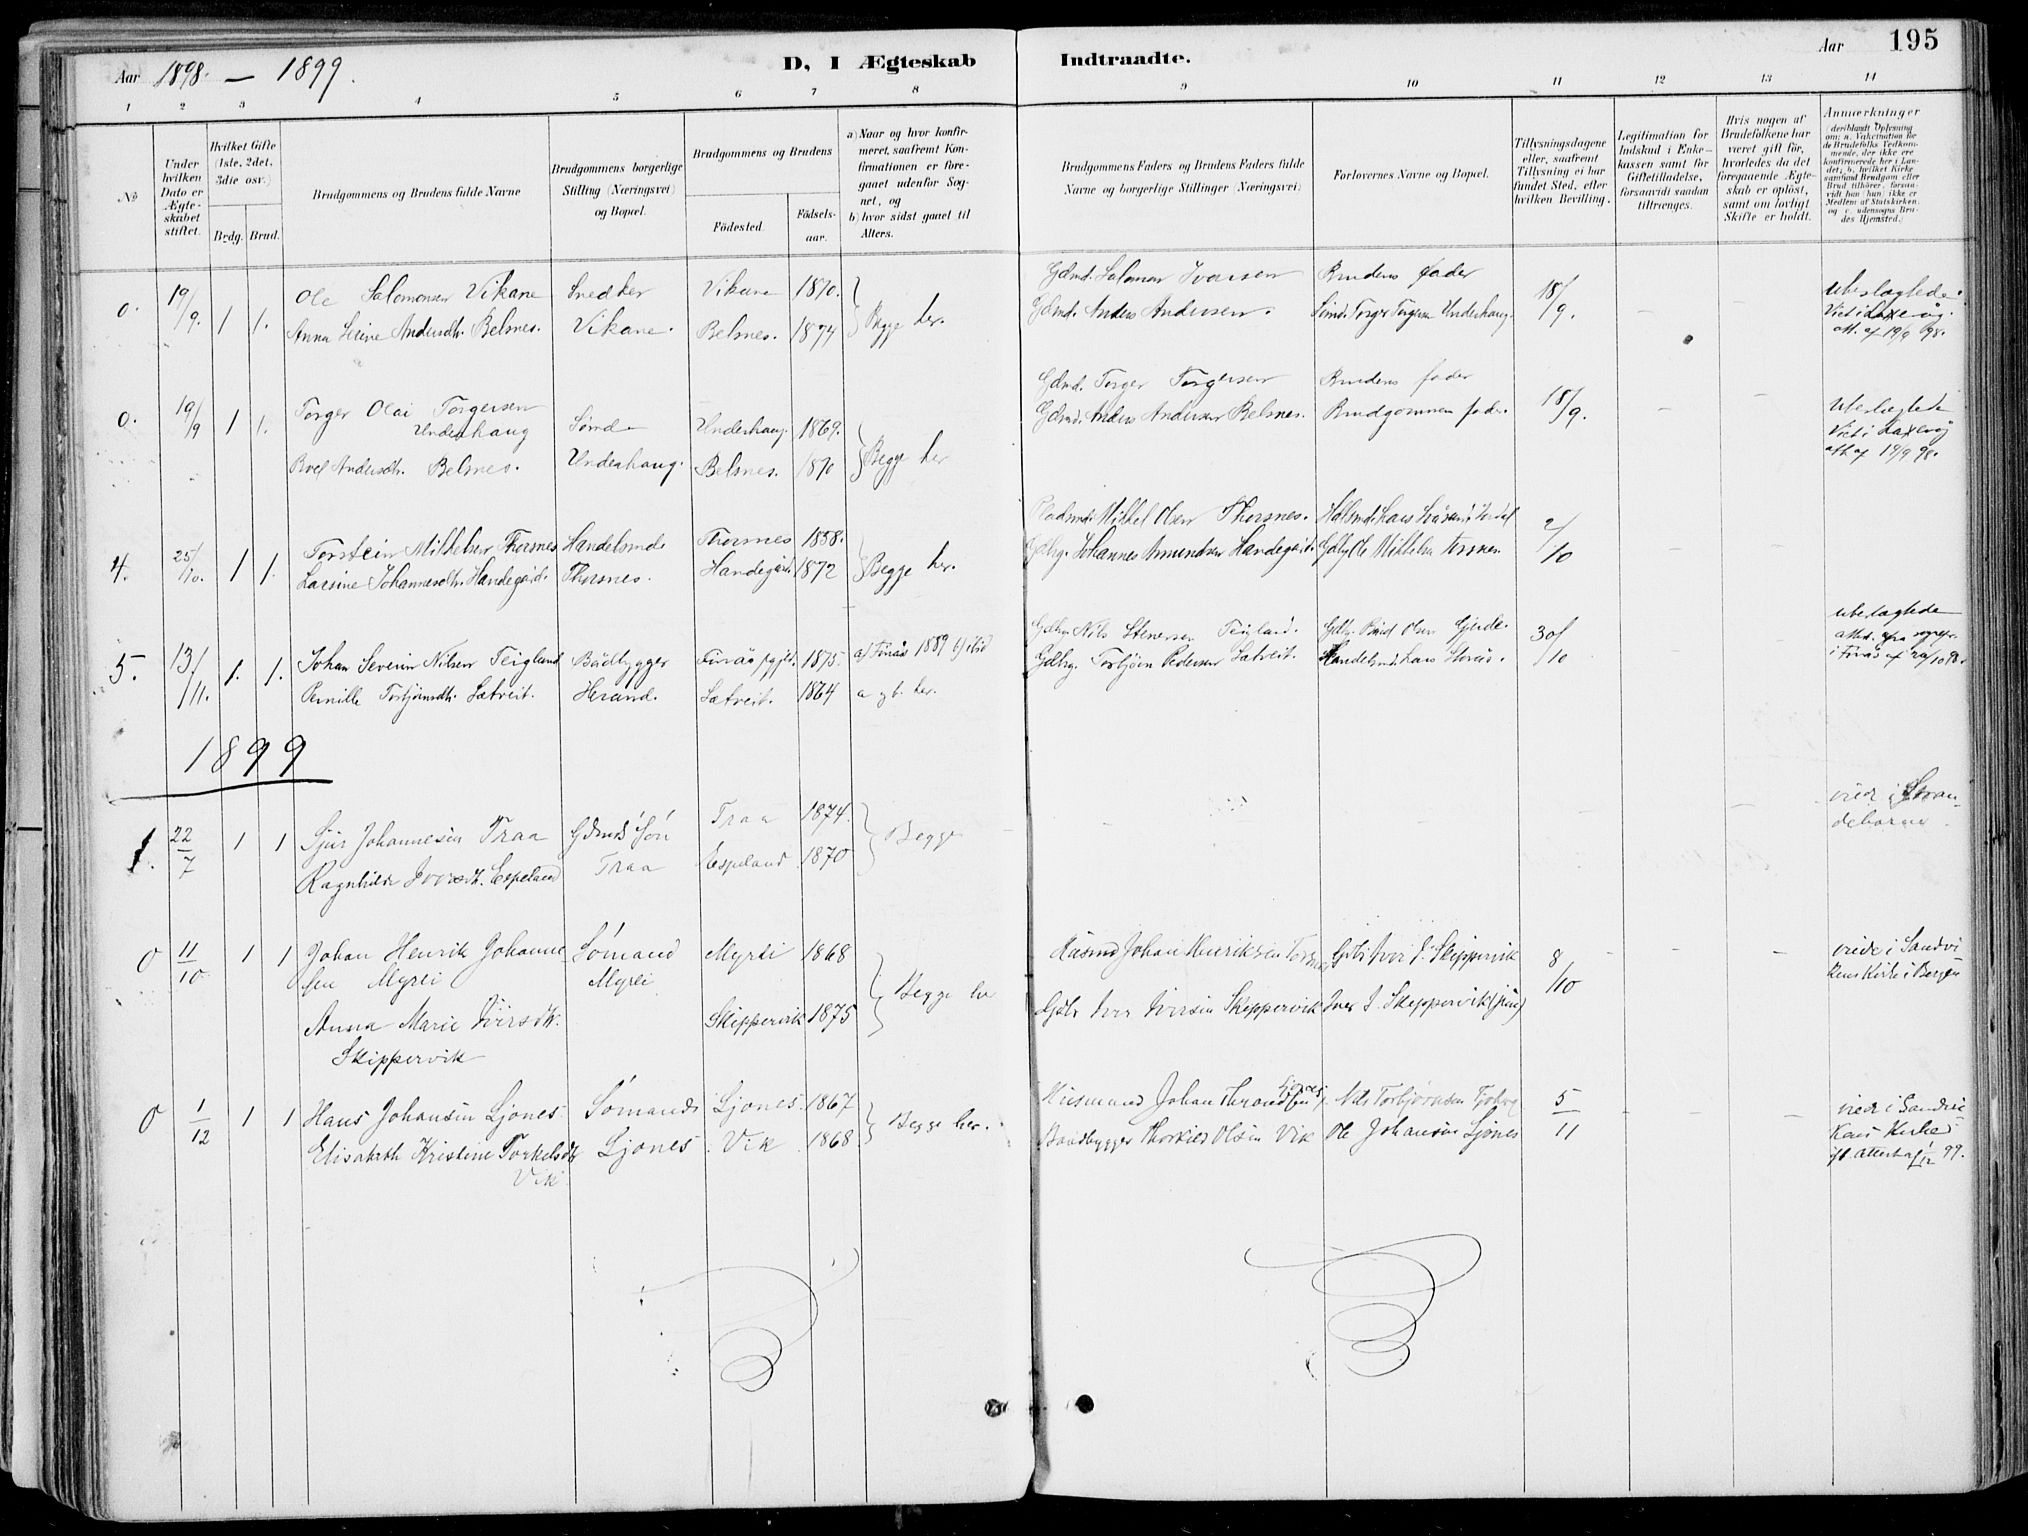 Aar 1898. — 1899.
D, I Ægteskab Indtraadte.
Aar 195
1 2 3 4 5 6 7 8 9 10 11 12 13 14
No
Under hvilken Dato er Ægteskabet stiftet.
Hvilket Gifte (1ste, 2det, 3die osv.)
Brdg. Brud.
Brudgommens og Brudens fulde Navne
Brudgommens borgerlige Stilling (Næringsvei) og Bopæl.
Brudgommens og Brudens
Fødested.
Fødselsaar.
a) Naar og hvor konfirmeret, saafremt Konfirmationen er foregaaet udenfor Sognet, og
b) hvor sidst gaaet til Alters.
Brudgommens Faders og Brudens Faders fulde Navne og borgerlige Stillinger (Næringsvei)
Forlovernes Navne og Bopæl.
Tillysningsdagene eller, saafremt Tillysning ei har fundet Sted, efter hvilken Bevilling.
Legitimation for Indskud i Enkekassen samt for Giftetilladelse, forsaavidt saadan tiltrænges.
Hvis nogen af Brudefolkene har været gift før, hvorledes da det foregaaende Ægteskab er opløst, samt om lovligt Skifte er holdt.
Anmærkninger (deriblandt Oplysning om: a. Vakcination for de Brudefolks Vedkommende, der ikke ere konfirmerede her i Landet; b. hvilket Kirkesamfund Brudgom eller Brud tilhører, forsaavidt han (hun) ikke er Medlem af Statskirken, og c. udensogns Brudes Hjemsted.)
0. 19/9. 1 1. Ole Salomonsen Vikane Snedker Vikane 1870. Gdmd. Salomon Ivarsen Brudens Fader 18/9. ubeslægtede.
Anna Serine Andersdtr. Belsnes. Vikane. Belsnes. 1874 Begge her. Gdmd. Anders Andersen. Sømd. Torger Torgersen Underhaug. Viet i Laxevåg. att. af 19/9 98.
0. 19/9 1 1. Torger Olai Torgersen Underhaug Sømd Underhaug. 1869. Gdmd. Torger Torgersen Brudens fader 18/9. Ubeslægtede
Andersdtr. Belsnes. Underhaug. Belsnes. 1870 Begge her Gdmd. Anders Andersen Belsnes. Brudgommen fader. Viet i Laxevåg att af 19/9 98.
4. 25/10. 1 1. Torstein Mikkelsen Thorsnes Handelsmd Thorsnes 1858. Mikkel Olsen Thorsnes. 2/10
Larsine Johannesdtr. Handegård. Thorsnes. Handegård. 1872 Begge her. Gdbr. Johannes Amundsen Handegård. Gdbr Ole Mikkelsen
5. 13/11. 1. 1. Johan Severin Nilsen Teigland Bådbygger 1875. 1889 Gdbr. Nils Stenersen Teigland. Gdbr. Olsen Gjerde. 30/10 ubeslægtede
Pernille Torbjørnsdtr. Sætveit. Herand. Sætveit. 1864 a og b. her. Gdbr. Torbjørn Pedersen Sætveit. Handelsmd. Lars
1899
1. 22/7 1 1 Sjur Johannesen Traa Gdmds Søn Traa 1874. Begge viede i Strandebarm
Ragnhilde Espeland Traa Espeland 1870
0 11/10 1 1 Johan Henrik Johannesen Myrei Sømand Myrei Myrei 1868 Husmd Johan Henriksen 8/10 viede i Sandvikens Kirke i Bergen
Anna Marie Iversdtr. Skippervik Skippervik 1875 Begge her Gdbr Iver Iversen Skippervik Iver I. Skippervik (jun)
0 1/12 1 1 Hans Johansen Ljones Sømand Ljones. 1867 Husmand Johan Ljones Nils Torbjørnsen 5/11 viede i Sandvikens Kirke
Elisabeth Kristine Torkelsdtr Vik Ljones Vik 1868 Begge her. Baadbygger Thorkild Olsen Vik Ole Johansen Ljones 1/12 99.